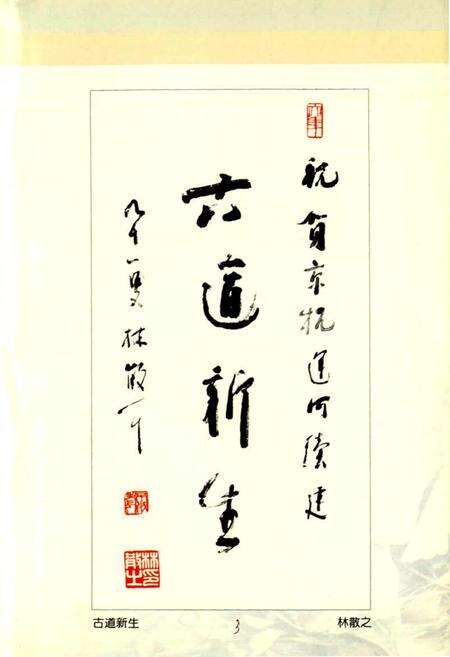 祝贺京杭运河续建
古道新生
九十一叟林散耳
古道新生
3
林散之